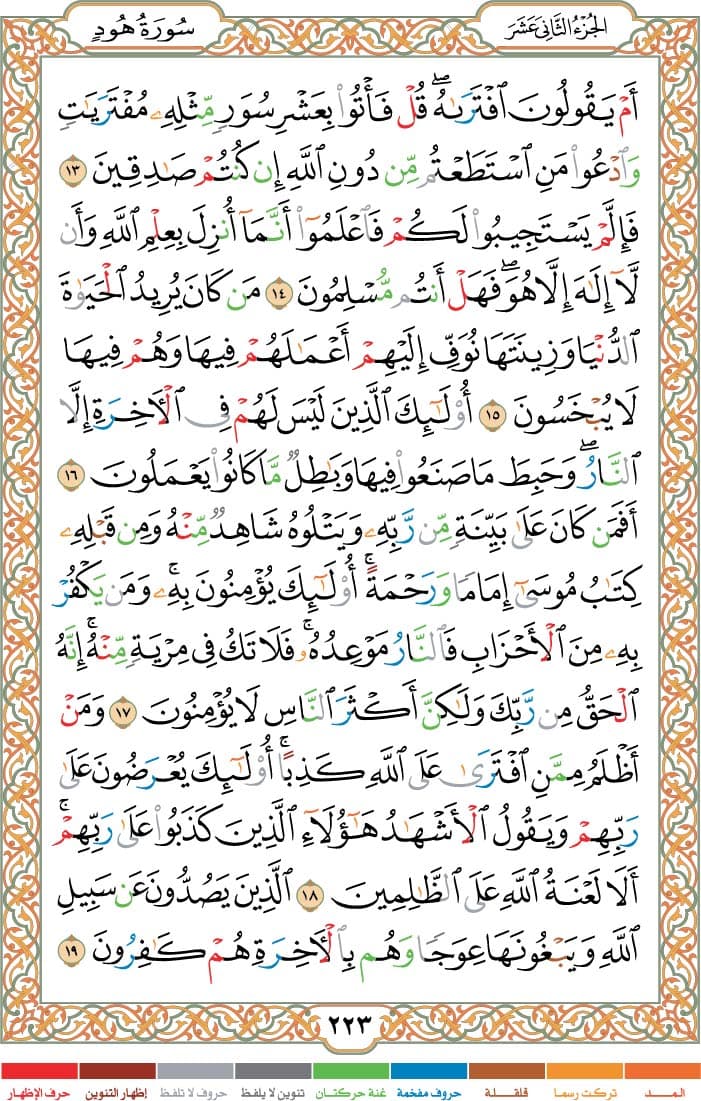 الجُزْءُ الثَّانِي عَشَرَ
سُورَةُ هُودٍ
أَمْ يَقُولُونَ ٱفْتَرَىٰهُۖ قُلْ فَأْتُوا۟ بِعَشْرِ سُوَرٍ مِّثْلِهِۦ مُفْتَرَيَٰتٍ
وَٱدْعُوا۟ مَنِ ٱسْتَطَعْتُم مِّن دُونِ ٱللَّهِ إِن كُنتُمْ صَٰدِقِينَ ١٣
فَإِلَّمْ يَسْتَجِيبُوا۟ لَكُمْ فَٱعْلَمُوٓا۟ أَنَّمَآ أُنزِلَ بِعِلْمِ ٱللَّهِ وَأَن
لَّآ إِلَٰهَ إِلَّا هُوَۖ فَهَلْ أَنتُم مُّسْلِمُونَ ١٤ مَن كَانَ يُرِيدُ ٱلْحَيَوٰةَ
ٱلدُّنْيَا وَزِينَتَهَا نُوَفِّ إِلَيْهِمْ أَعْمَٰلَهُمْ فِيهَا وَهُمْ فِيهَا
لَا يُبْخَسُونَ ١٥ أُو۟لَٰٓئِكَ ٱلَّذِينَ لَيْسَ لَهُمْ فِى ٱلْءَاخِرَةِ إِلَّا
ٱلنَّارُۖ وَحَبِطَ مَا صَنَعُوا۟ فِيهَا وَبَٰطِلٌ مَّا كَانُوا۟ يَعْمَلُونَ ١٦
أَفَمَن كَانَ عَلَىٰ بَيِّنَةٍ مِّن رَّبِّهِۦ وَيَتْلُوهُ شَاهِدٌ مِّنْهُ وَمِن قَبْلِهِۦ
كِتَٰبُ مُوسَىٰٓ إِمَامًا وَرَحْمَةًۚ أُو۟لَٰٓئِكَ يُؤْمِنُونَ بِهِۦۚ وَمَن يَكْفُرْ
بِهِۦ مِنَ ٱلْأَحْزَابِ فَٱلنَّارُ مَوْعِدُهُۥۚ فَلَا تَكُ فِى مِرْيَةٍ مِّنْهُۚ إِنَّهُ
ٱلْحَقُّ مِن رَّبِّكَ وَلَٰكِنَّ أَكْثَرَ ٱلنَّاسِ لَا يُؤْمِنُونَ ١٧ وَمَنْ
أَظْلَمُ مِمَّنِ ٱفْتَرَىٰ عَلَى ٱللَّهِ كَذِبًاۚ أُو۟لَٰٓئِكَ يُعْرَضُونَ عَلَىٰ
رَبِّهِمْ وَيَقُولُ ٱلْأَشْهَٰدُ هَٰٓؤُلَآءِ ٱلَّذِينَ كَذَبُوا۟ عَلَىٰ رَبِّهِمْۚ
أَلَا لَعْنَةُ ٱللَّهِ عَلَى ٱلظَّٰلِمِينَ ١٨ ٱلَّذِينَ يَصُدُّونَ عَن سَبِيلِ
ٱللَّهِ وَيَبْغُونَهَا عِوَجًا وَهُم بِٱلْءَاخِرَةِ هُمْ كَٰفِرُونَ ١٩
٢٢٣
المـــد تركت رسما قلقـــلة حروف مفخمة غنة حركتـان تنوين لا يلفظ حروف لا تلفظ إظهار التنوين حرف الإظهار